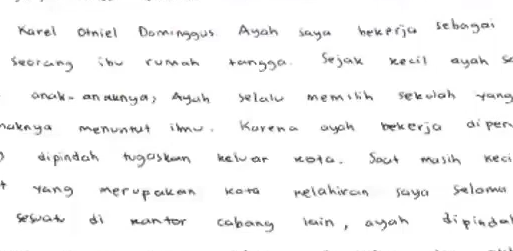 Karel Otniel Dominggus. Ayah saya bekerja sebagai
seorang ibu rumah tangga. Sejak kecil ayah
anak-anaknya, Ayah selalu memilih sekolah yang
menuntut ilmu. Karena ayah bekerja di
dipindah tugaskan keluar kota. Saat masih
yang merupakan kota kelahiran saya selama
sesuatu di kantor cabang lain, ayah